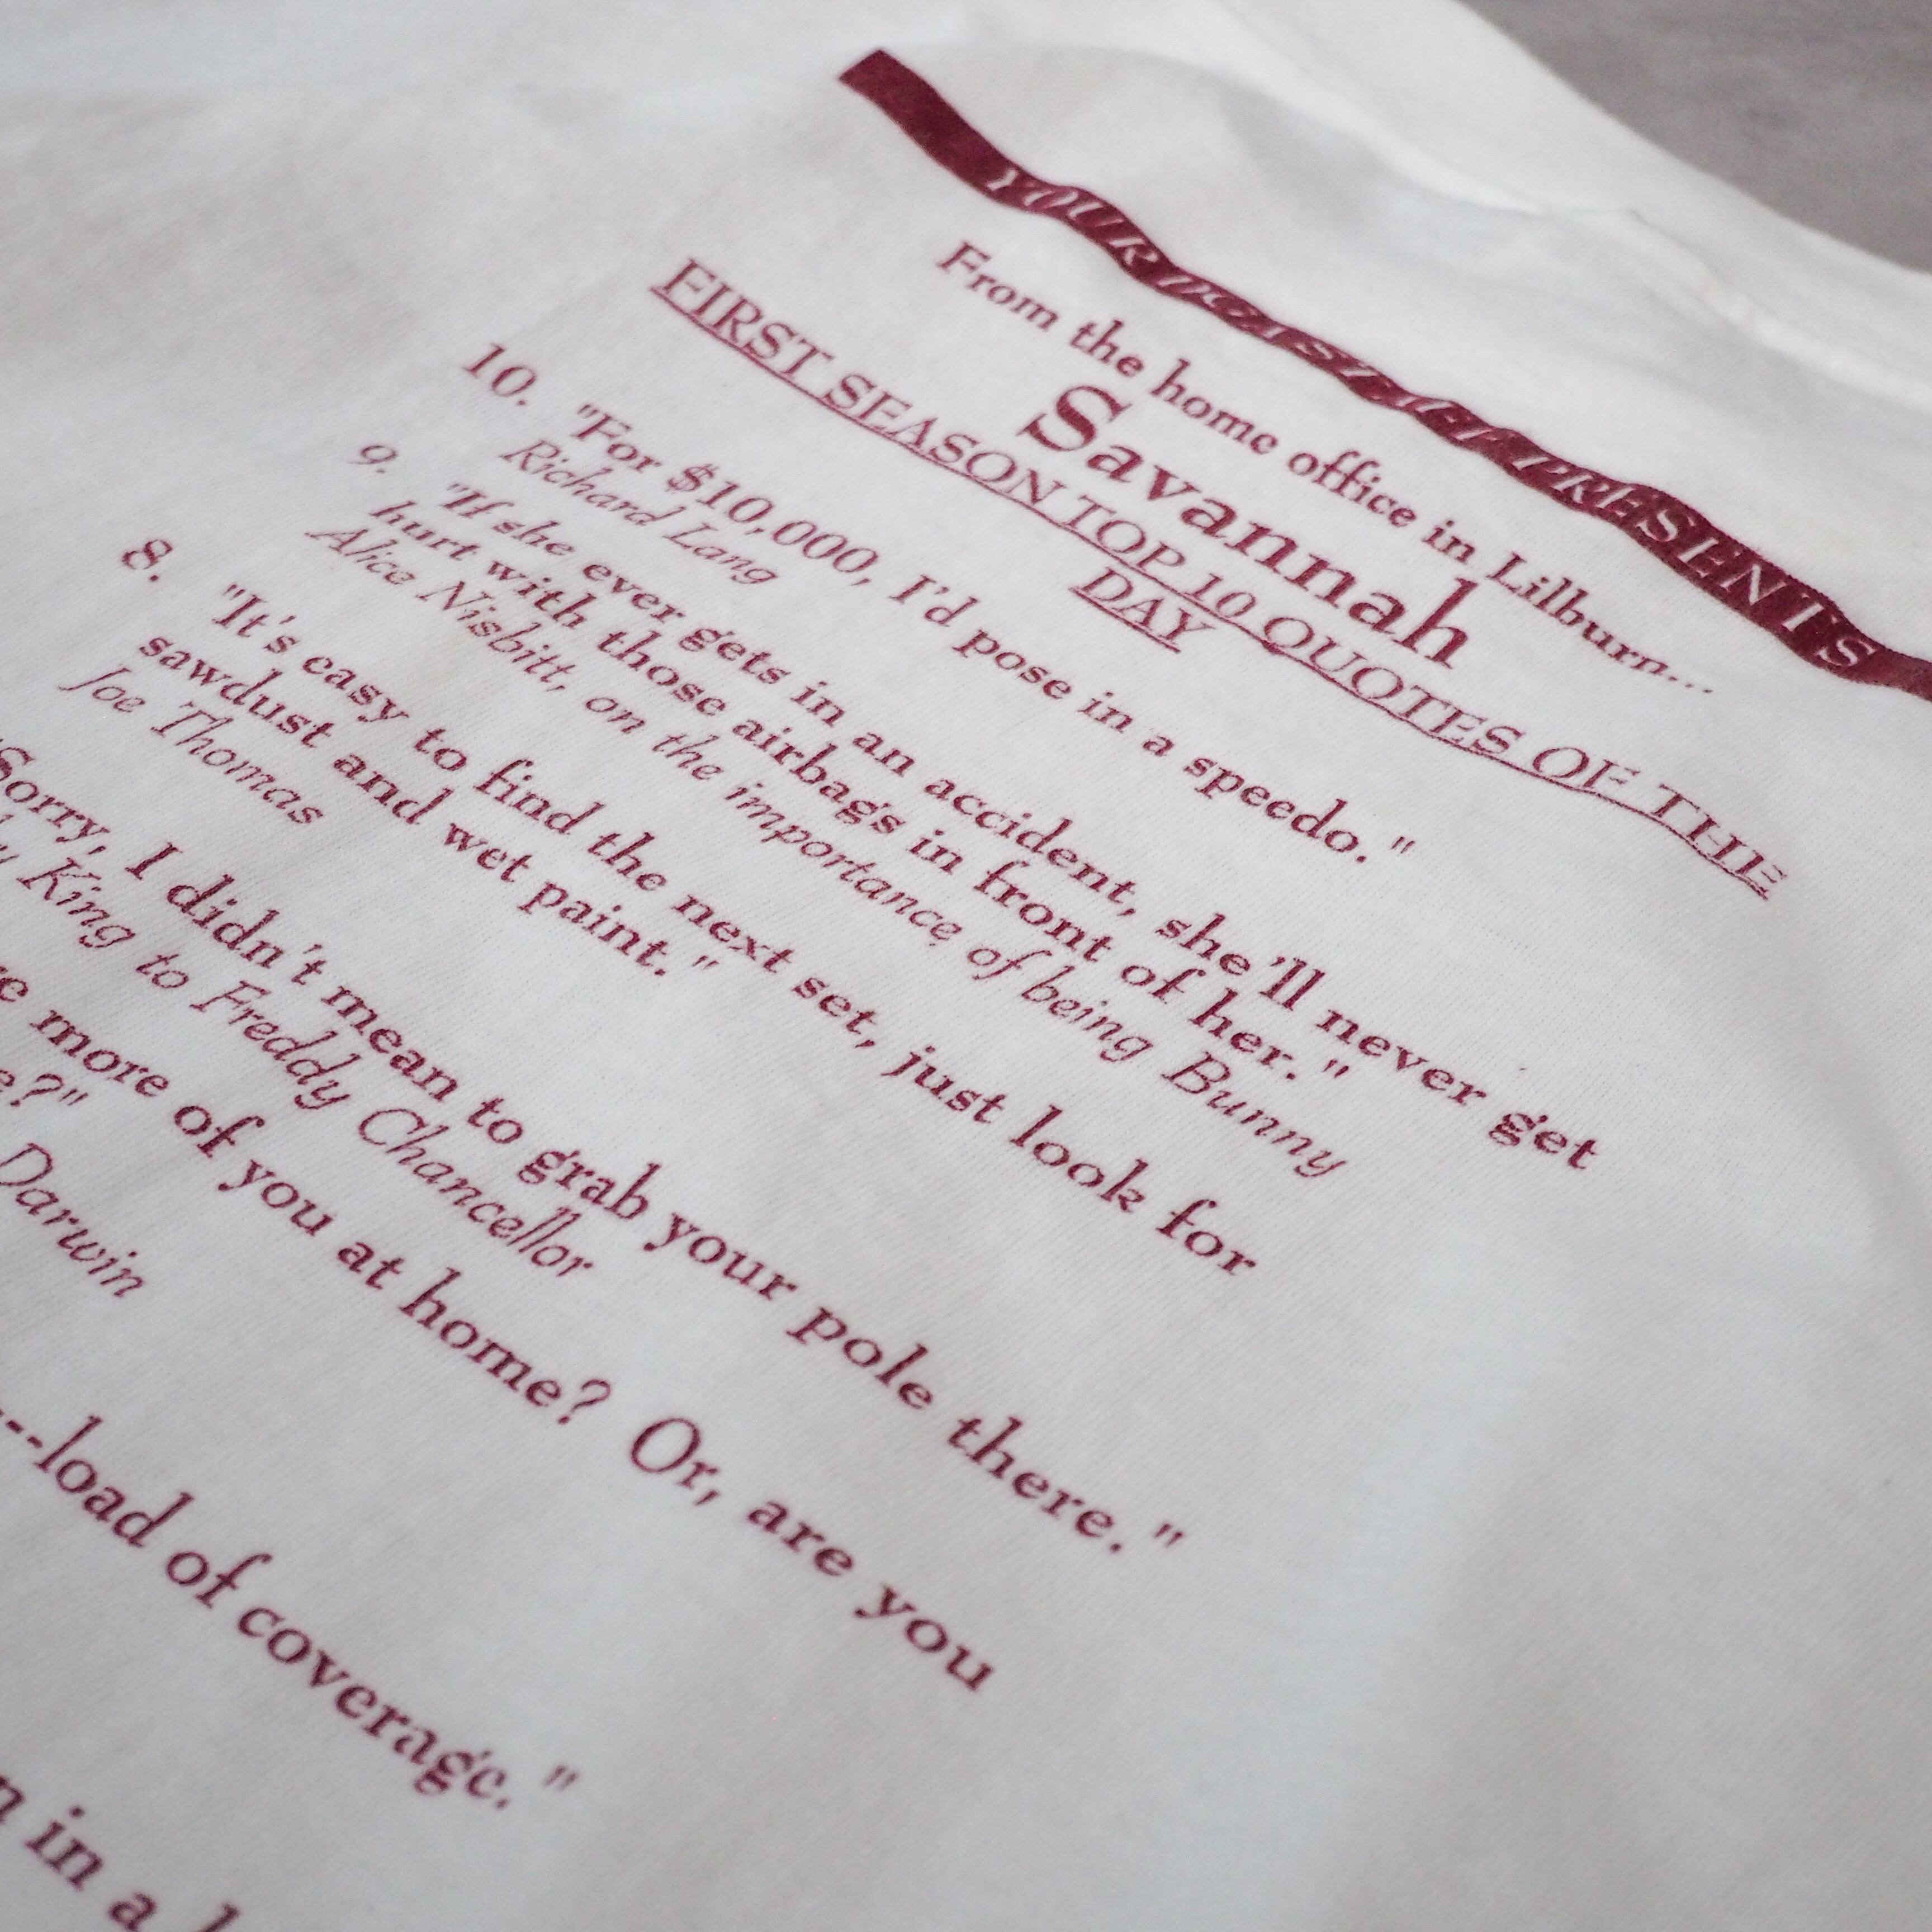 YOUR PRESENTS
From the home office in Lilburn...
Savannah
FIRST SEASON TOP 10 QUOTES OF THE
DAY
10. "For $10,000, I'd pose in a speedo."
Richard Lang
9. "If she ever gets in an accident, she'll never get
hurt with those airbags in front of her."
Alice Nisbitt, on the importance of being Bunny
8. "It's easy to find the next set, just look for
sawdust and wet paint."
Joe Thomas
"Sorry, I didn't mean to grab your pole there."
King to Freddy Chancellor
more of you at home? Or, are you
?"
Darwin
--load of coverage."
in a